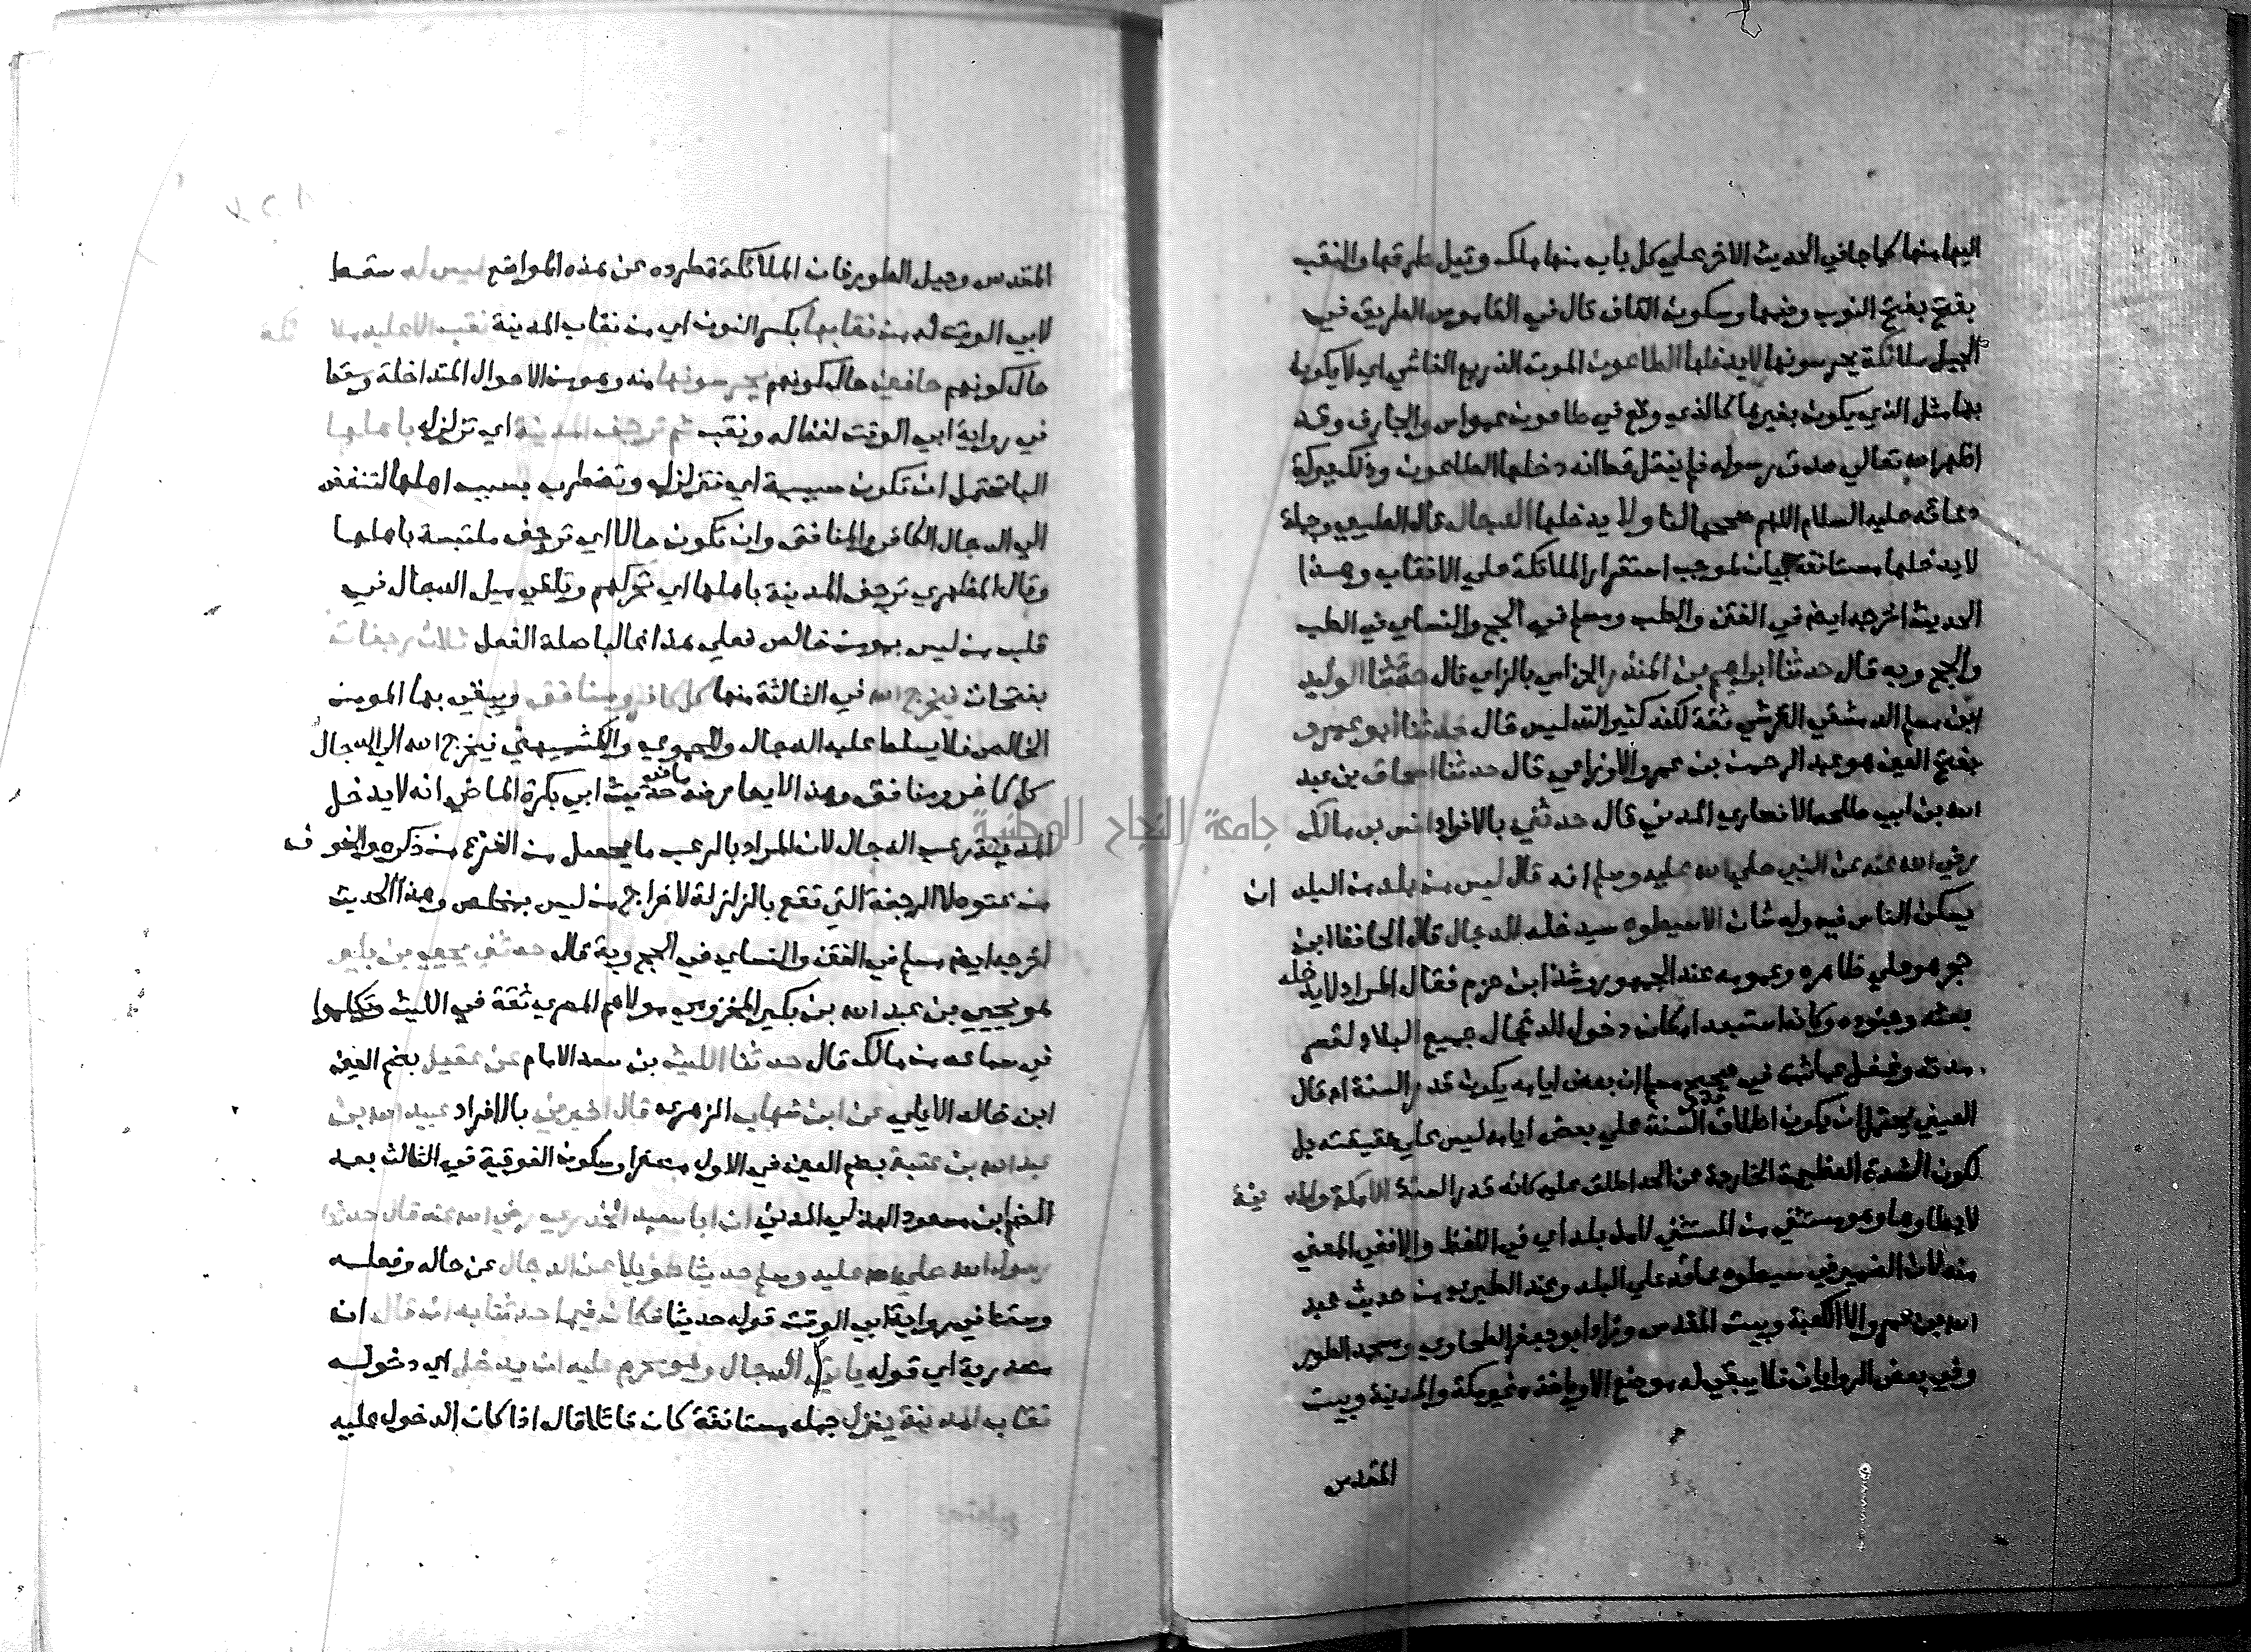 اليها منها كما جا في الحديث الاخر علي كل باب منها ملك وقيل طرقها والنقب
بفتح بفتح النون وضمها وسكون القاف قال في القاموس الطريق في
الجبل ملائكة يحرسونها لا يدخلها الطاعون الموت الذريع الفاشي اي لا يكون
بها مثل الذي يكون بغيرها كالذي وقع في طاعون عمواس والجارف وقد
اظهر الله تعالي صدق رسوله فلم ينقل قط انه دخلها الطاعون وذلك ببركة
دعائه عليه السلام اللهم صححها لنا ولا يدخلها الدجال قال الطيبي وجملة
لا يدخلها مستانفة بيان لموجب استقرار الملائكة علي الانقاب وهذا
الحديث اخرجه ايضا في الفتن والطب ومسلم في الحج والنساي في الطب
والحج وبه قال حدثنا ابراهيم بن المنذر الحزامي بالزاي قال حدثنا الوليد
ابن مسلم الدمشقي القرشي ثقة لكنه كثير التدليس قال حدثنا ابو عمرو
بفتح العين هو عبد الرحمن بن عمرو الاوزاعي قال حدثنا اسحاق بن عبد
الله بن ابي طلحه الانصاري المدني قال حدثني بالافراد انس بن مالك
رضي الله عنه عن النبي صلي الله عليه وسلم انه قال ليس من بلد من البلدان
يسكن الناس فيه وله شان الا سيطوه سيدخله الدجال قال الحافظ ابن
حجر هو علي ظاهره وعمومه عند الجمهور وشذ ابن حزم فقال المراد لا يدخله
بعثه وجنوده وكانه استبعد امكان دخول الدجال جميع البلاد لقصر
مدته وغفل عما ثبت في صحيح مسلم ان بعض ايامه يكون قدر السنة اه قال
العيني يحتمل ان يكون اطلاق قدر السنة علي بعض ايامه ليس علي حقيقته بل
لكون الشدة العظيمة الخارجة عن الحد اطلق عليه كانه قدر السنة الا مكة والمدينة
لا يطاوها وهو مستثني من المستثني لا من بلد اي في اللفظ والا ففي المعني
منه لان الضمير في سيطوه عائد علي البلد وعند الطبري من حديث عبد
الله بن عمرو الا الكعبة وبيت المقدس وزاد ابو جعفر الطحاوي ومسجد الطور
وفي بعض الروايات فلا يبقي له موضع الا وياخذه غير مكة والمدينة وبيت
المقدس
المقدس وجبل الطور فان الملائكة تطرده عن هذه المواضع ليس له سقط
لابي الوقت له من نقابها بكسر النون اي من نقاب المدينة نقب الا عليه ملائكة
حال كونهم صافين حال كونهم يحرسونها منه وهو من الاحوال المتداخلة وسقط
في رواية ابي الوقت لفظ له ونقب ثم ترجف المدينة اي تزلزل باهلها
البا تحتمل ان تكون سببية اي تتزلزل وتضطرب بسبب اهلها لتنفض
الي الدجال الكافر والمنافق وان تكون حالا اي ترجف ملتبسة باهلها
وقال المظهري ترجف المدينة باهلها اي تحركهم وتلقي ميل الدجال في
قلب من ليس بمومن خالص فعلي هذا فالبا صلة الفعل ثلاث رجفات
بفتحات فيخرج الله في الثالثة منها كل كافر ومنافق ويبقي بها المومن
الخالص فلا يسلط عليه الدجال وللحموي والكشميهني فيخرج الله الي الدجال
كل كافر ومنافق وهذا لا يعارضه ما في حديث ابي بكرة الماضي انه لا يدخل
المدينة رعب الدجال لان المراد بالرعب ما يحصل من الفزع من ذكره والخوف
من عتوه لا الرجفة التي تقع بالزلزلة لاخراج من ليس بمخلص وهذا الحديث
اخرجه ايضا مسلم في الفتن والنساي في الحج وبه قال حدثني يحيي بن بكير
هو يحيي بن عبد الله بن بكير المخزومي مولاهم المصري ثقة في الليث وتكلموا
في سماعه من مالك قال حدثنا الليث بن سعد الامام عن عقيل بضم العين
ابن خالد الايلي عن ابن شهاب الزهري قال اخبرني بالافراد عبيد الله بن
عبد الله بن عتبة بضم العين في الاول مصغرا وسكون الفوقية في الثالث بعد
الضم ابن مسعود الهذلي المدني ان ابا سعيد الخدري رضي الله عنه قال حدثنا
رسول الله صلي الله عليه وسلم حديثا طويلا عن الدجال عن حاله وفعلسه
وسقط في رواية ابي الوقت قوله حديثا فكان فيما حدثنا به ان قال ان
مصدرية اي قوله ياتي الدجال وهو محرم عليه ان يدخل اي دخوله
نقاب المدينة ينزل جملة مستانفة كان قائلا قال اذا كان الدخول عليه
جامعة النجاح الوطنية